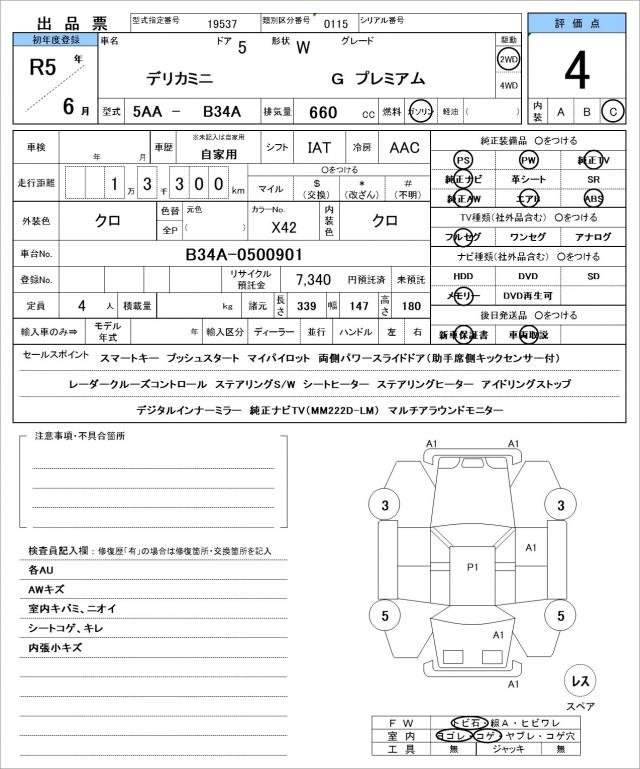 出品票 型式指定番号 19537 類別区分番号 0115 シリアル番号
評価点
初年度登録 車名 ドア 5 形状 W グレード 駆動
R5 年 デリカミニ G プレミアム 2WD 4
6 月 4WD
型式 5AA － B34A 排気量 660 CC 燃料 ガソリン 軽油 （ ） 内装 A B C
車検 年 月 車歴 ※未記入は自家用 自家用 シフト IAT 冷房 AAC
純正装備品 〇をつける
PS PW 純正TV
走行距離 1 万 3 千 3 0 0 km マイル 〇をつける $ (交換) * (改ざん) # (不明)
純正ナビ 革シート SR
純正AW エアB ABS
外装色 クロ 色替 元色 全P （ ） カラーNo. X42 内装色 クロ
TV種類(社外品含む) 〇をつける
フルセグ ワンセグ アナログ
車台No. B34A-0500901
ナビ種類(社外品含む) 〇をつける
登録No. リサイクル預託金 7,340 円預託済 未預託
HDD DVD SD
メモリー DVD再生可
定員 4 人 積載量 kg 諸元 長さ 339 幅 147 高さ 180
後日発送品 〇をつける
輸入車のみ⇒ モデル年式 年 輸入区分 ディーラー 並行 ハンドル 左 右
新車保証書 車両取説
セールスポイント スマートキー プッシュスタート マイパイロット 両側パワースライドドア(助手席側キックセンサー付)
レーダークルーズコントロール ステアリングS/W シートヒーター ステアリングヒーター アイドリングストップ
デジタルインナーミラー 純正ナビTV(MM222D-LM) マルチアラウンドモニター
注意事項・不具合箇所
検査員記入欄：修復歴「有」の場合は修復箇所・交換箇所を記入
各AU
AWキズ
室内キバミ、ニオイ
シートコゲ、キレ
内張小キズ
A1 A1
3 3
A1
P1
5 5
A1
A1
レス
スペア
FW トビ石・線A・ヒビワレ
室内 ヨゴレ・コゲ・ヤブレ・コゲ穴
工具 無 ジャッキ 無